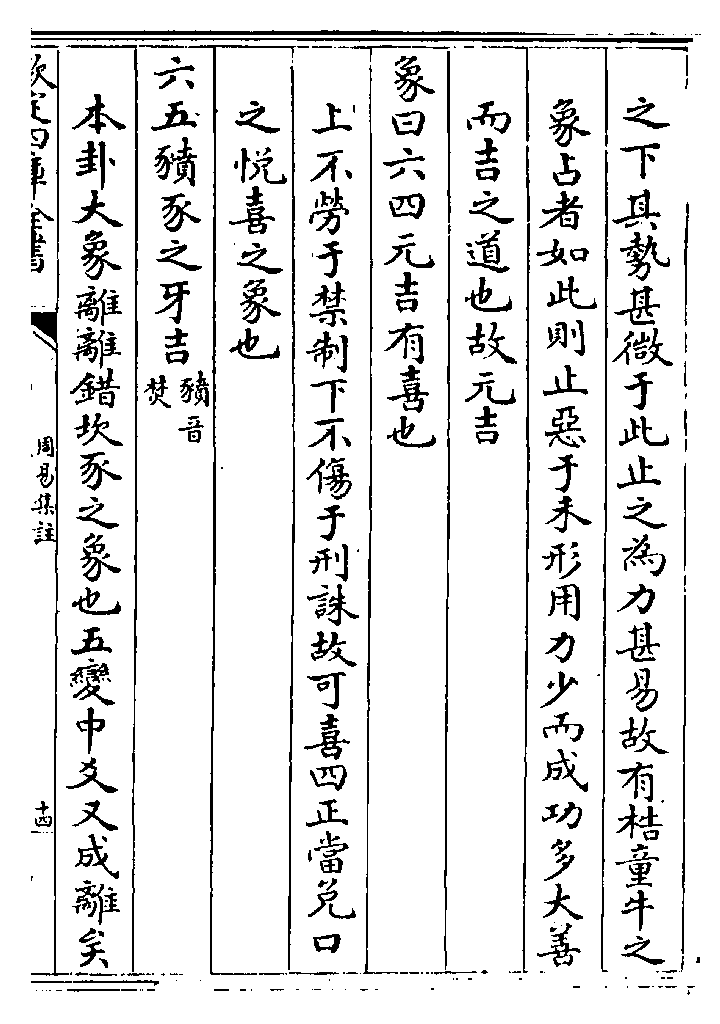 之下其勢甚微于此止之為力甚易故有梏童牛之
象占者如此則止惡于未形用力少而成功多大善
而吉之道也故元吉
象曰六四元吉有喜也
上不勞于禁制下不傷于刑誅故可喜四正當兌口
之悅喜之象也
六五豶豕之牙吉豶音焚
本卦大象離離錯坎豕之象也五變中爻又成離矣
欽定四庫全書
周易集註
十四